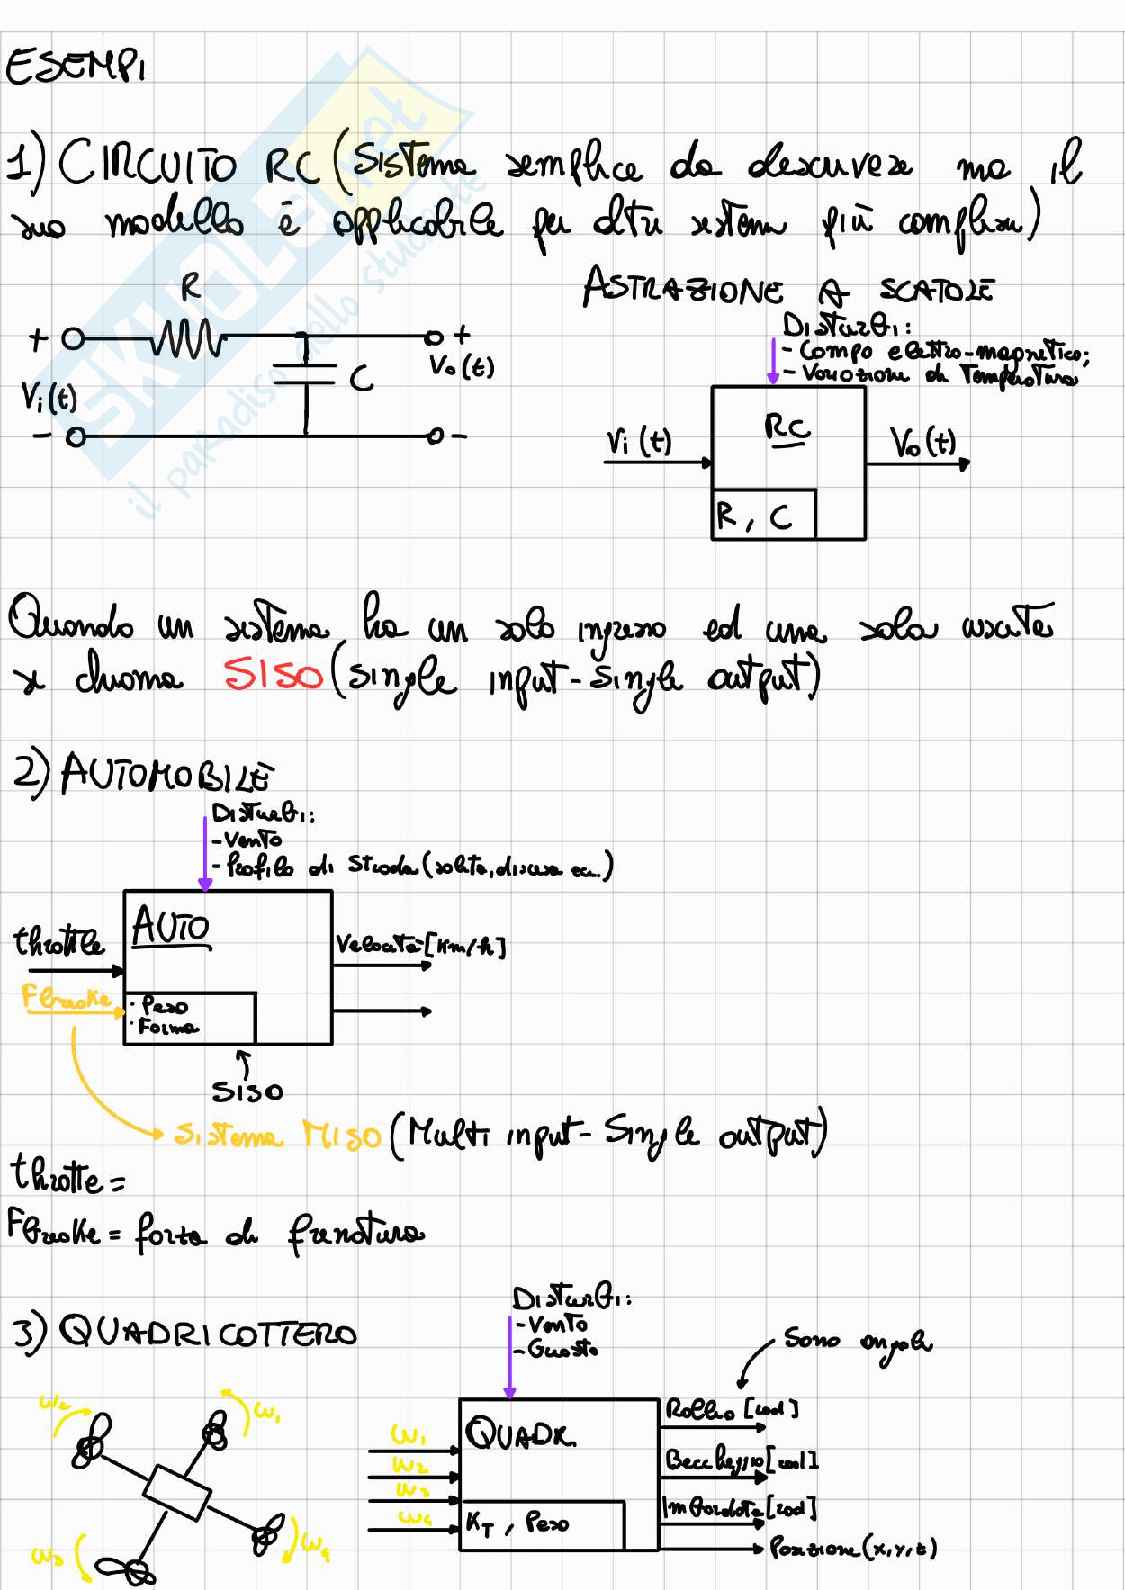 ESEMPI
1) CIRCUITO RC (Sistema semplice da descrivere ma il
suo modello è applicabile per altri sistemi più complessi)
R
ASTRAZIONE A SCATOLE
Disturbi:
- Campo elettro-magnetico;
- Variazione di Temperatura
+ +
Vi(t) C Vo(t)
- -
RC
Vi(t) Vo(t)
R, C
SKUOLA.net
il paradiso dello studente
Quando un sistema ha un solo ingresso ed una sola uscita
si chiama SISO (single input-single output)
2) AUTOMOBILE
Disturbi:
- Vento
- Profilo di Strada (salita, discesa ecc.)
AUTO
throttle
Velocità [Km/h]
FBrake
· Peso
· Forma
SISO
Sistema MISO (Multi input- Single output)
throtte =
FBrake = forza di frenatura
3) QUADRICOTTERO
Disturbi:
- Vento
- Guasto
Sono angoli
ω2 ω1
ω3 ω4
QUADR.
ω1
ω2
ω3
ω4
KT, Peso
Rollio [rad]
Beccheggio [rad]
Imbardata [rad]
Posizione (x,y,z)